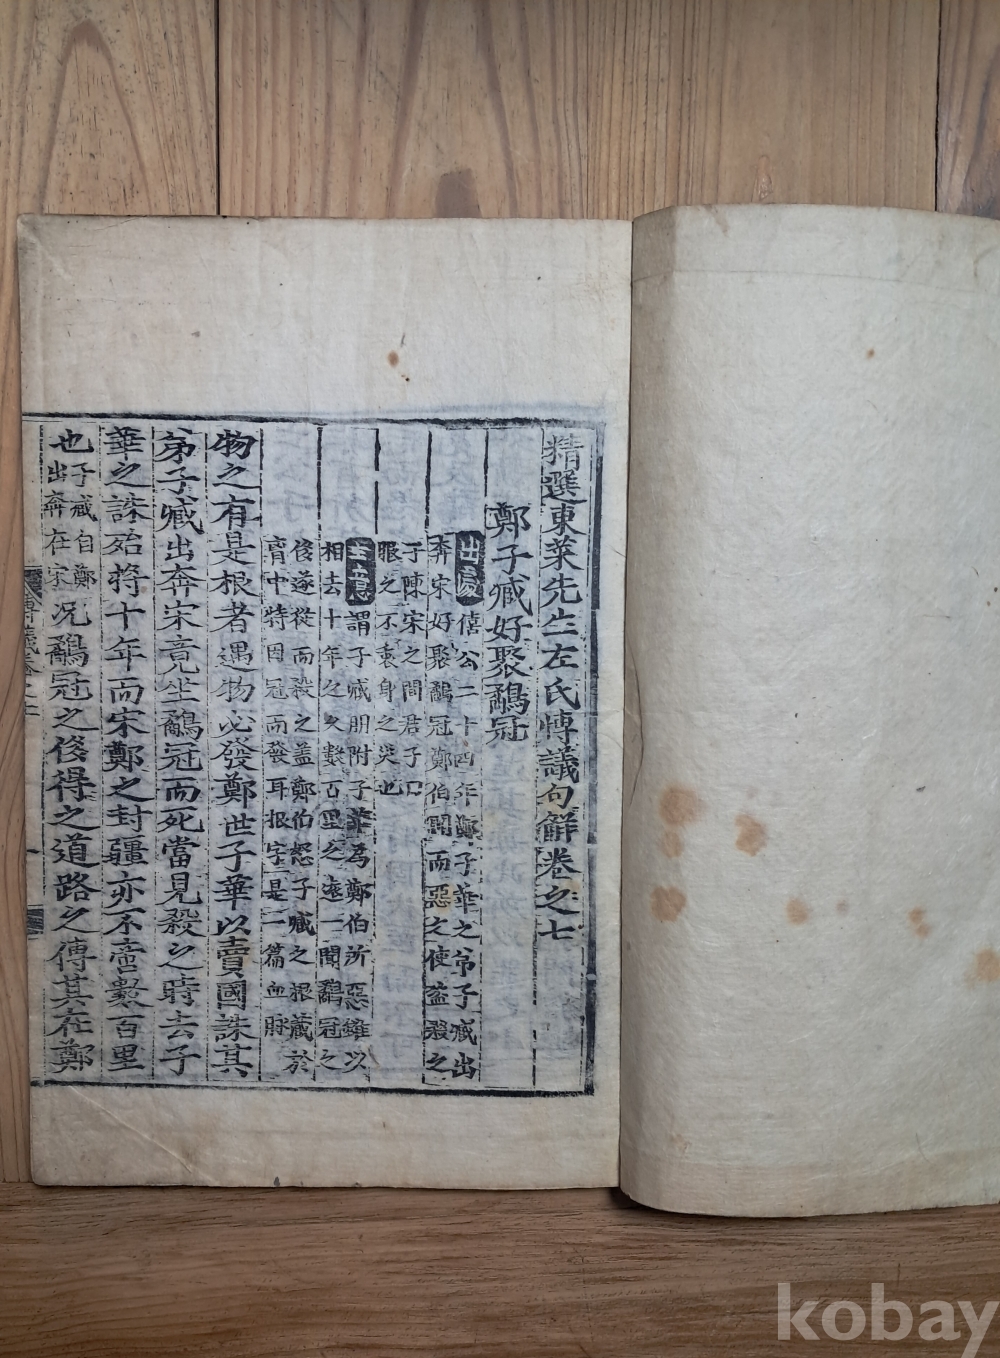 精選東萊先生左氏愽議句解卷之七
鄭子臧好聚鷸冠
出處 僖公二十四年鄭子華之弟子臧出
奔宋好聚鷸冠鄭伯聞而惡之使盜殺之
于陳宋之間君子曰
服之不衷身之災也
主意 謂子臧朋附子華為鄭伯所惡雖以
相去十年之久數百里之遠一聞鷸冠之
後遂從而殺之盖鄭伯怒子臧之根藏於
胷中特因冠而發耳根字是一篇血脉
物之有是根者遇物必發鄭世子華以賣國誅其
弟子臧出奔宋竟坐鷸冠而死當見殺之時去子
華之誅殆將十年而宋鄭之封疆亦不啻數百里
也 子臧自鄭
出奔在宋
况鷸冠之侈得之道路之傳其在鄭
kobay